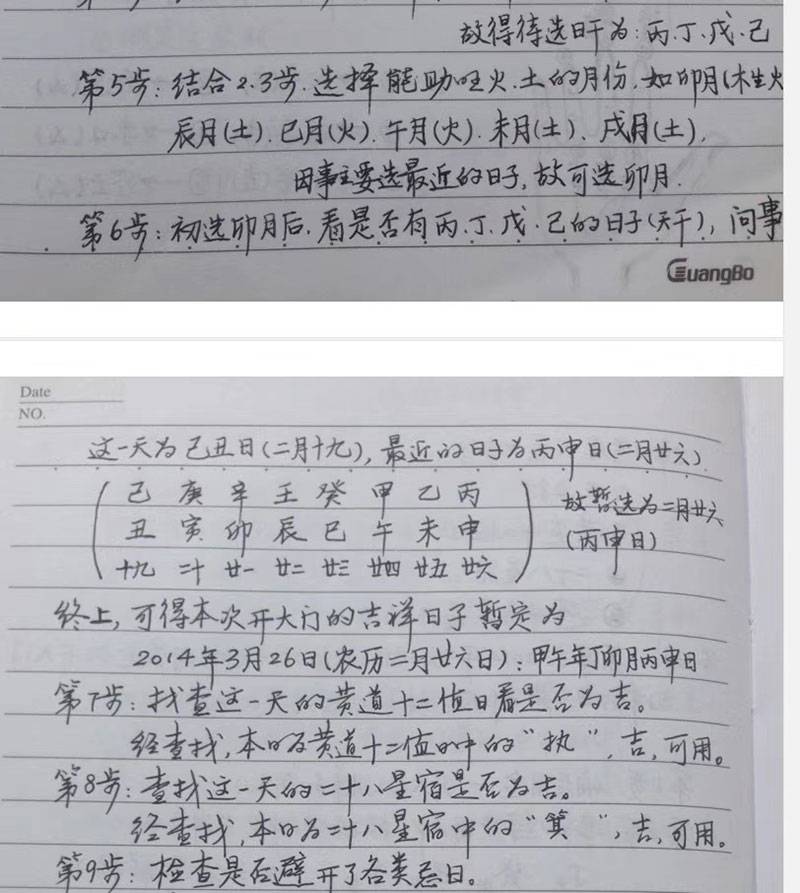 故得待选日干为:丙.丁.戊.己
第5步:结合2.3步.选择能助旺火.土的月份.如卯月(木生火
辰月(土).巳月(火).午月(火).未月(土).戌月(土).
因事主要选最近的日子,故可选卯月.
第6步:初选卯月后.看是否有丙.丁.戊.己的日子(天干),问事
GuangBo
Date
NO.
这一天为己丑日(二月十九),最近的日子为丙申日(二月廿六)
己 庚 辛 壬 癸 甲 乙 丙
丑 寅 卯 辰 巳 午 未 申
十九 二十 廿一 廿二 廿三 廿四 廿五 廿六
故暂选为二月廿六
(丙申日)
终上,可得本次开大门的吉祥日子暂定为
2014年3月26日(农历二月廿六日):甲午年丁卯月丙申日
第7步:找查这一天的黄道十二值日看是否为吉。
经查找,本日为黄道十二值日中的"执",吉,可用。
第8步:查找这一天的二十八星宿是否为吉。
经查找,本日为二十八星宿中的"箕",吉,可用。
第9步:检查是否避开了各类忌日。